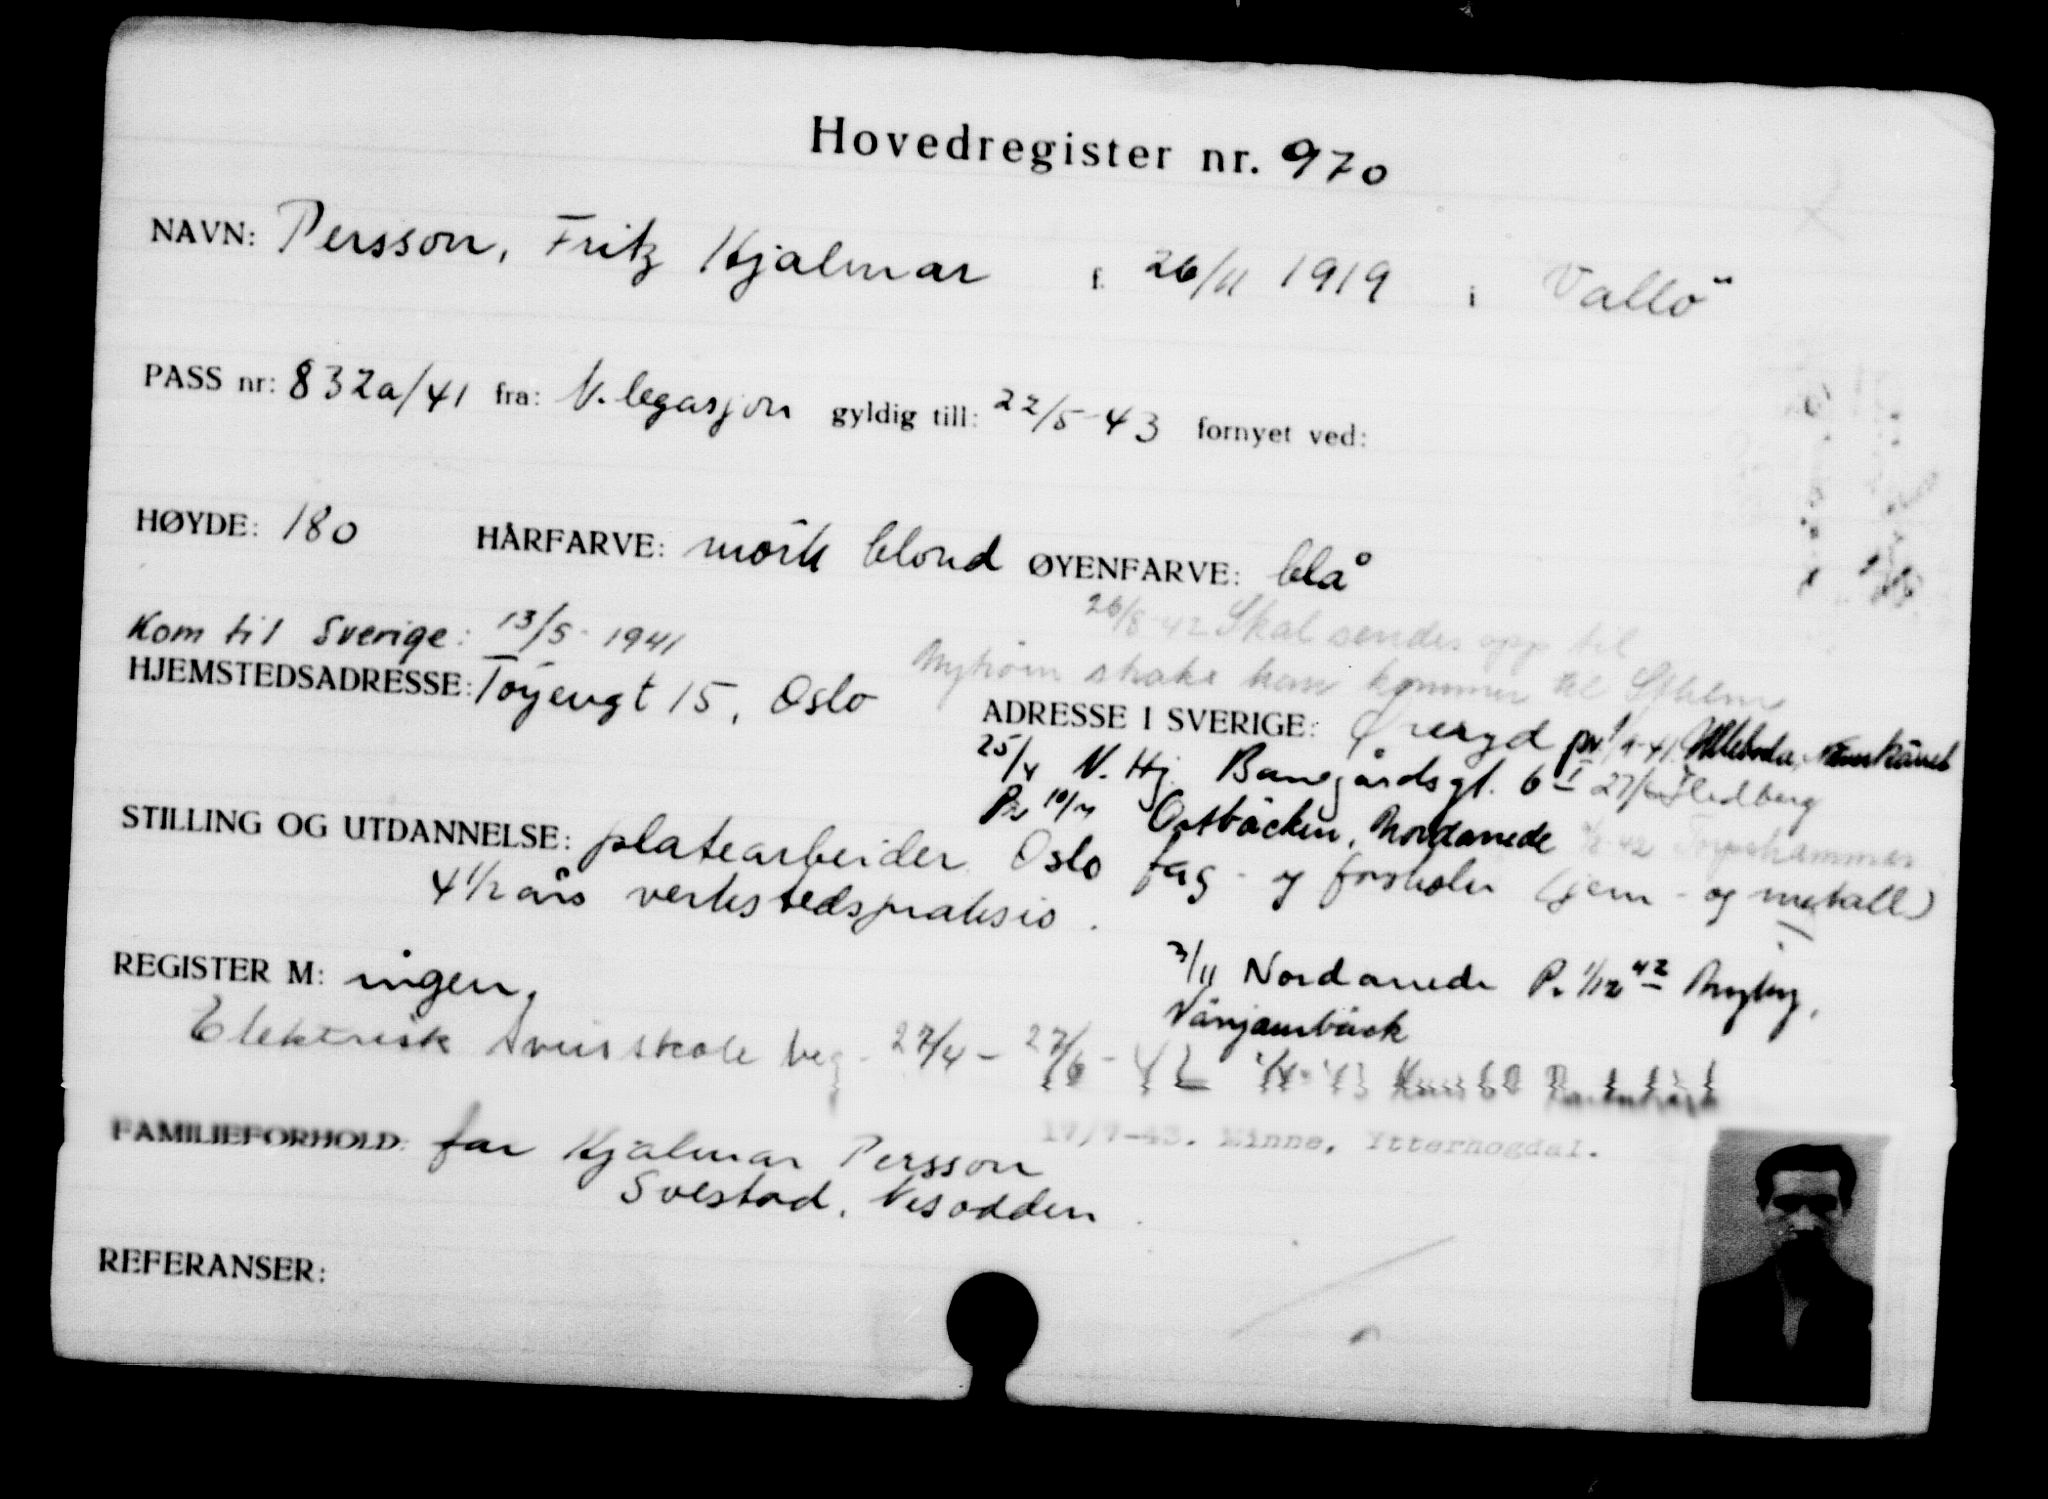 Hovedregister nr. 970
NAVN: Persson, Fritz Hjalmar f. 26/11 1919 i Vallö
PASS nr: 832a/41 fra: N. legasjon gyldig till: 22/5-43 fornyet ved:
HØYDE: 180 HÅRFARVE: mörk blond ØYENFARVE: blå
26/8-42 Skal sendes opp til
Kom til Sverige: 13/5-1941
straks han kommer til Sthlm
HJEMSTEDSADRESSE: Töyengt 15, Oslo
ADRESSE I SVERIGE: Øreryd pr
25/4 N. Hj. Banegårdsgt. 6 I Hedberg
Pr 10/7 Ostbäcken, Nordanede Torpshammar
STILLING OG UTDANNELSE: platearbeider Oslo fag- og forskole (jern- og metall)
4 1/2 års verkstedspraksis.
REGISTER M: ingen.
3/11 Nordanede Pr 1/12 42
Vänjaurbäck
Elektrisk sveisskole beg. 27/4 - 27/6 - 42 43 Kurs 60
FAMILIEFORHOLD: far Hjalmar Persson
19/9-43. Minne, Ytterhogdal.
Svestad, Nesodden
REFERANSER: